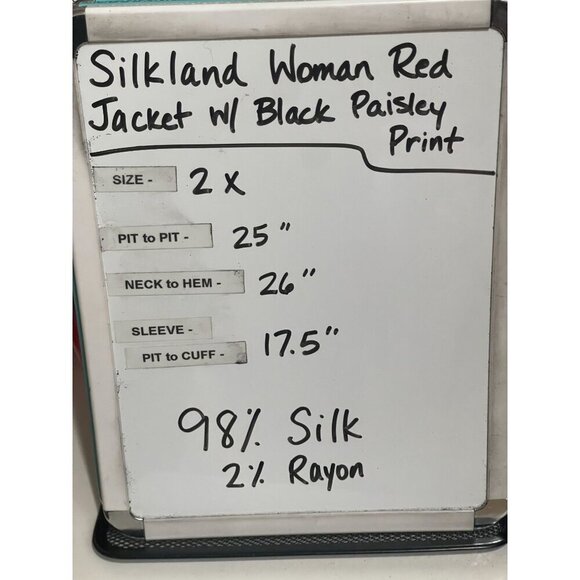 Silkland Woman Red
Jacket w/ Black Paisley
Print
SIZE - 2X
PIT to PIT - 25"
NECK to HEM - 26"
SLEEVE -
PIT to CUFF - 17.5"
98% Silk
2% Rayon